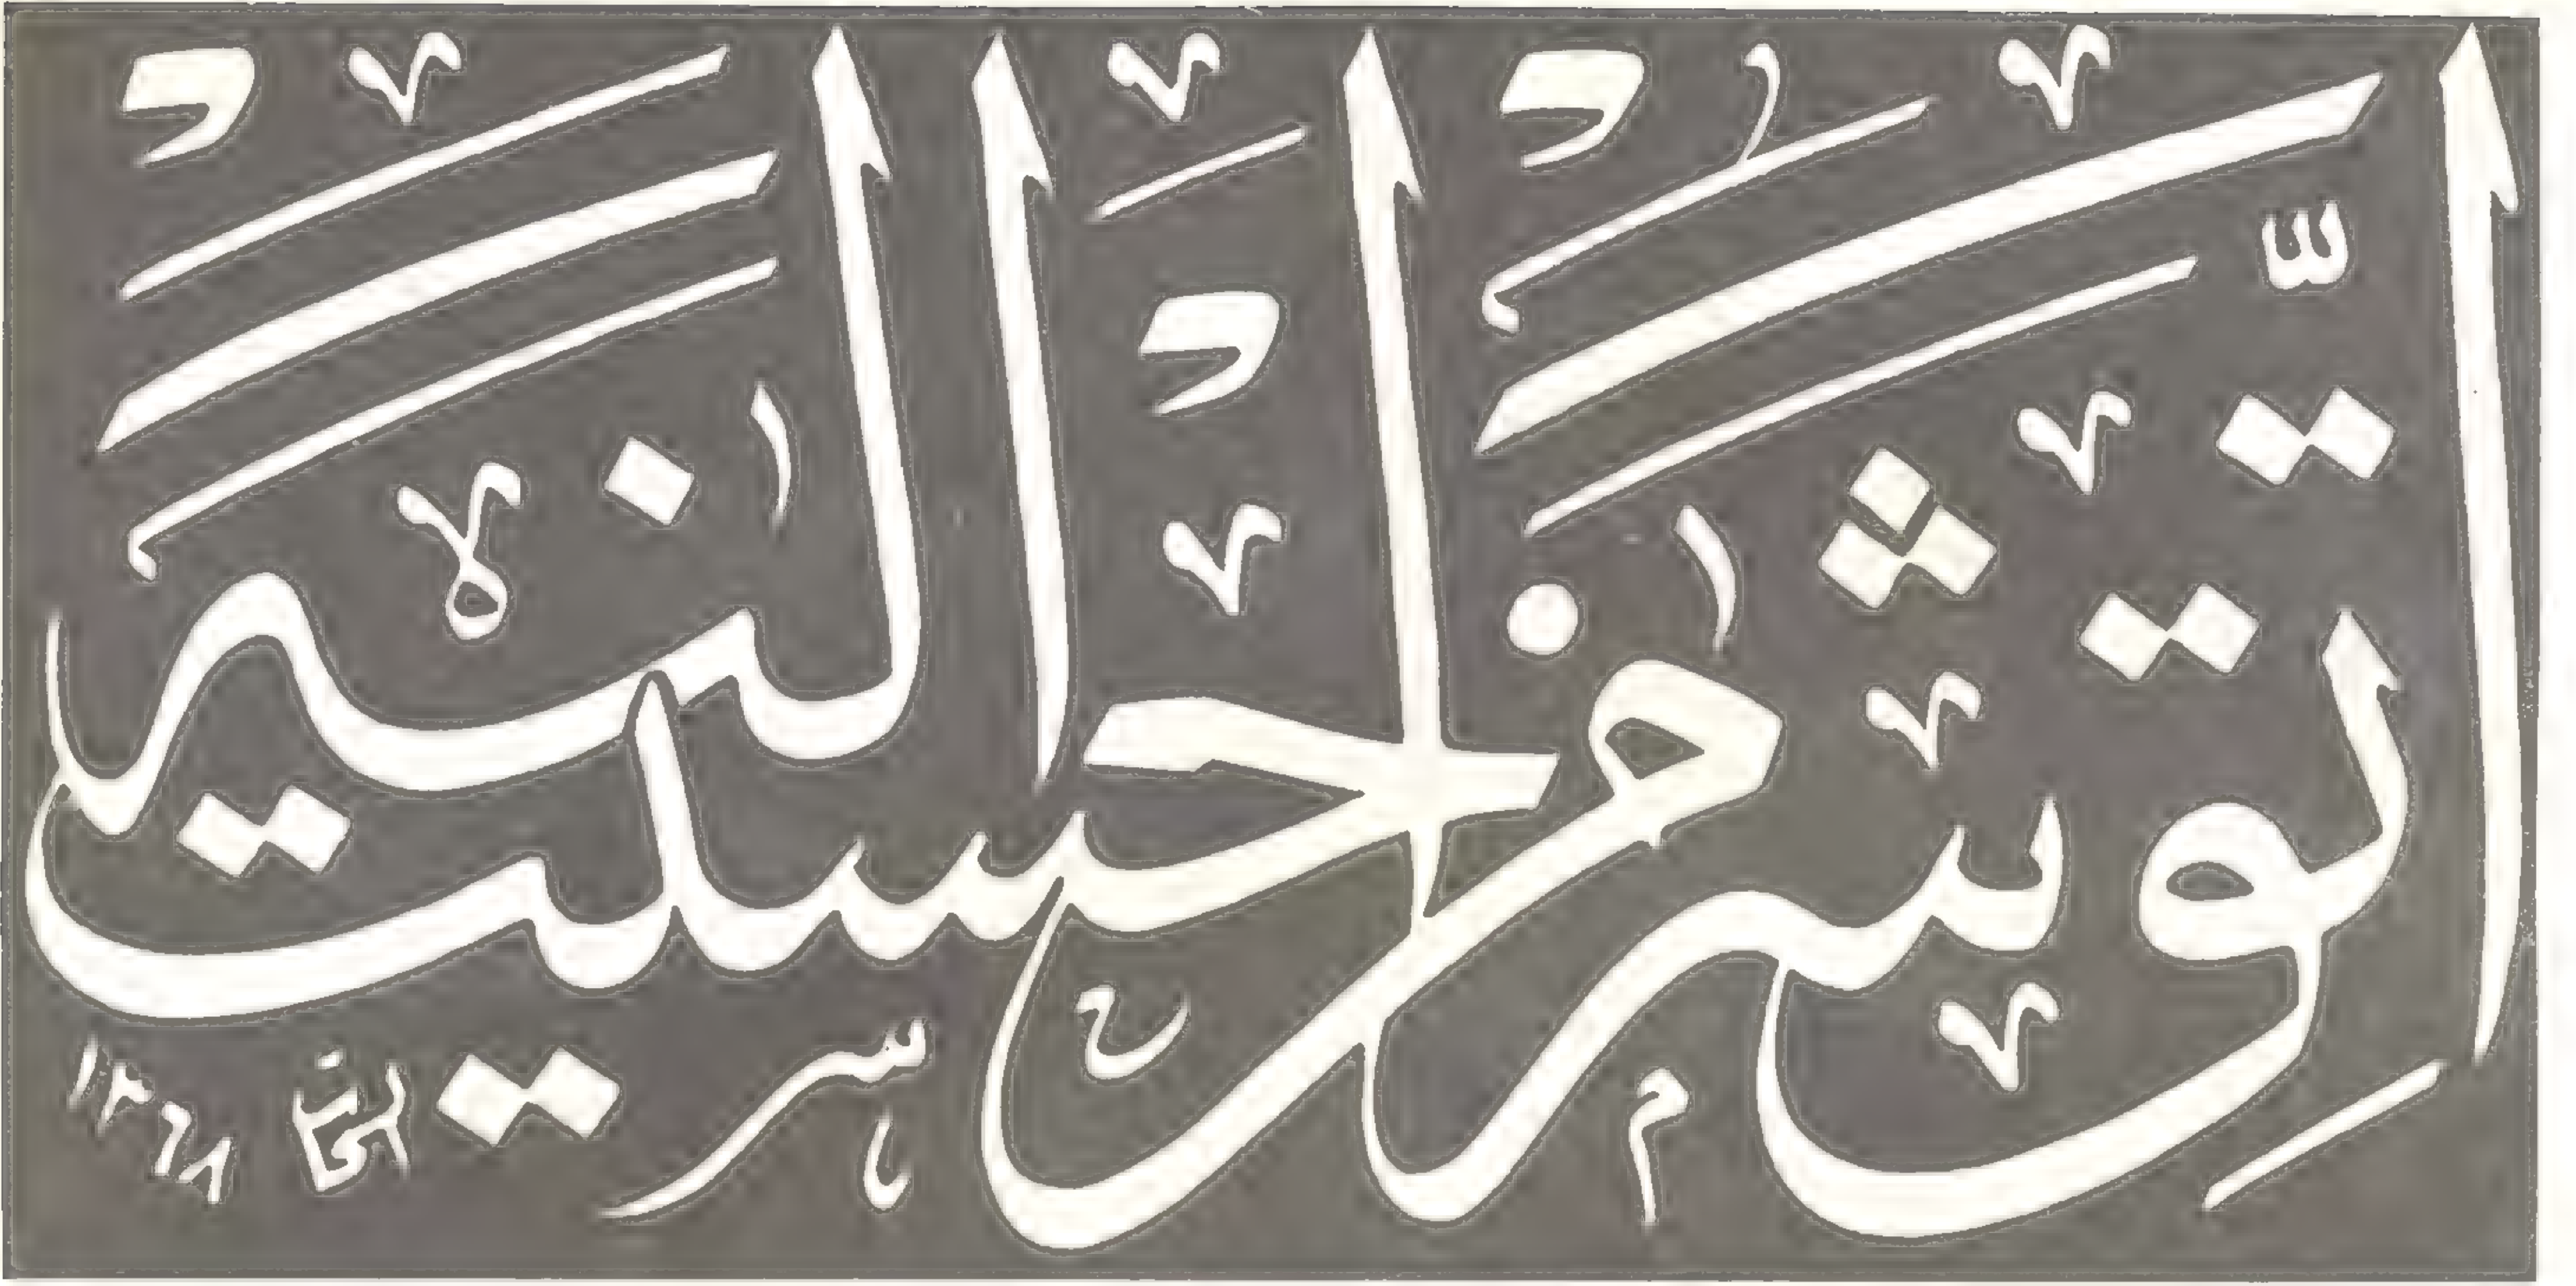 اتق شر من احسنت اليه
١٣٦٨